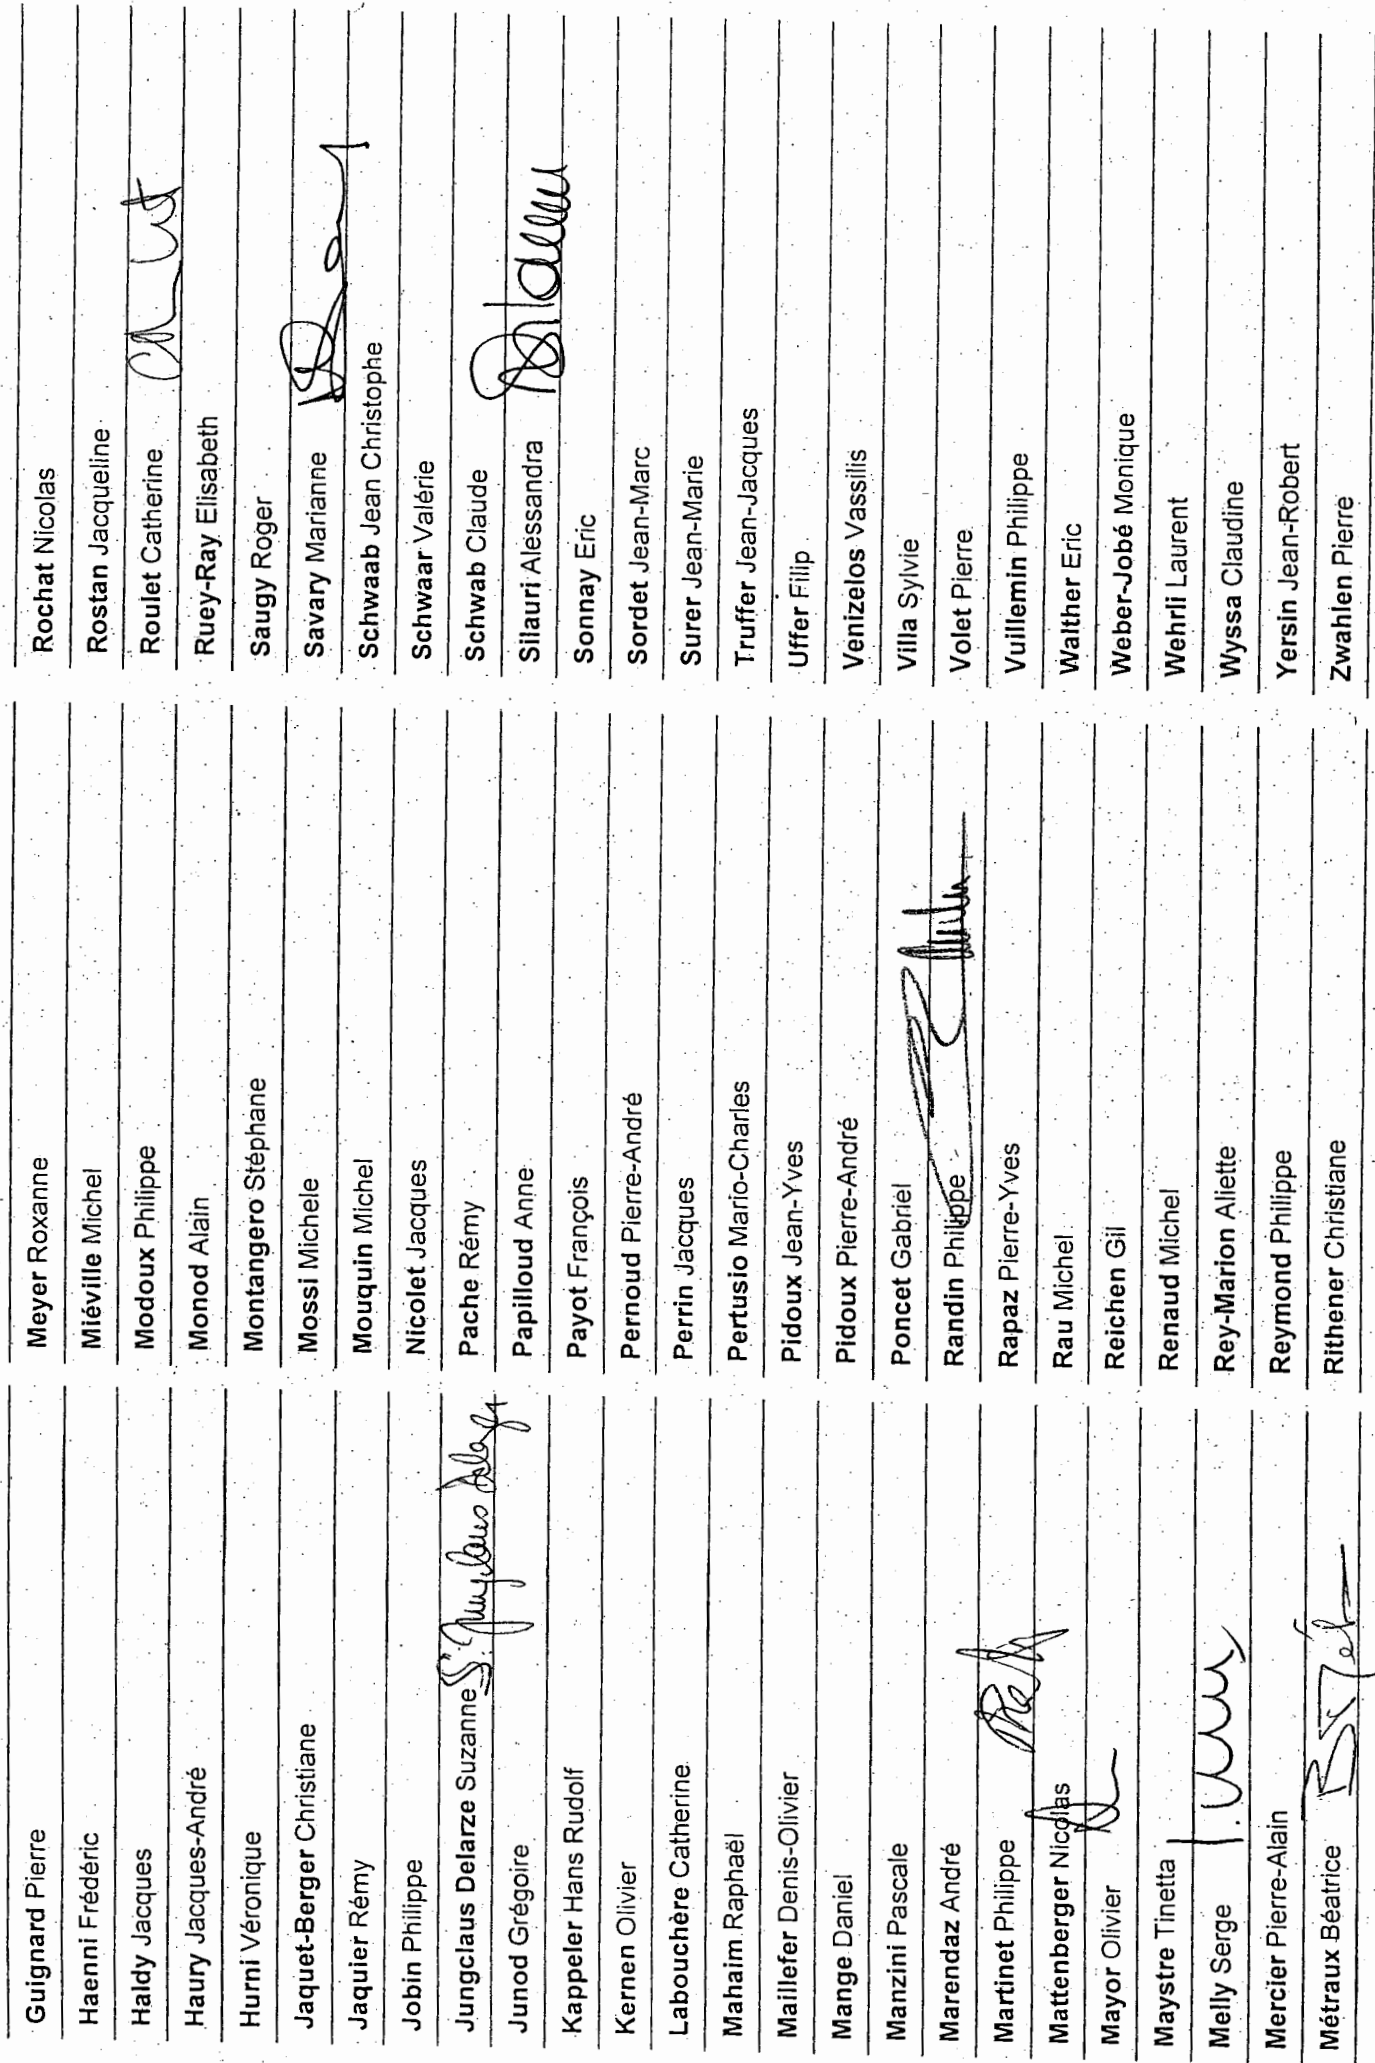 Guignard Pierre
Haenni Frédéric
Haldy Jacques
Haury Jacques-André
Hurni Véronique
Jaquet-Berger Christiane
Jaquier Rémy
Jobin Philippe
Jungclaus Delarze Suzanne S. Jungclaus Delarze
Junod Grégoire
Kappeler Hans Rudolf
Kernen Olivier
Labouchère Catherine
Mahaim Raphaël
Maillefer Denis-Olivier
Mange Daniel
Manzini Pascale
Marendaz André
Martinet Philippe
Mattenberger Nicolas
Mayor Olivier
Maystre Tinetta
Melly Serge
Mercier Pierre-Alain
Métraux Béatrice
Meyer Roxanne
Miéville Michel
Modoux Philippe
Monod Alain
Montangero Stéphane
Mossi Michele
Mouquin Michel
Nicolet Jacques
Pache Rémy
Papilloud Anne
Payot François
Pernoud Pierre-André
Perrin Jacques
Pertusio Mario-Charles
Pidoux Jean-Yves
Pidoux Pierre-André
Poncet Gabriel
Randin Philippe
Rapaz Pierre-Yves
Rau Michel
Reichen Gil
Renaud Michel
Rey-Marion Aliette
Reymond Philippe
Rithener Christiane
Rochat Nicolas
Rostan Jacqueline
Roulet Catherine
Ruey-Ray Elisabeth
Saugy Roger
Savary Marianne
Schwaab Jean Christophe
Schwaar Valérie
Schwab Claude
Silauri Alessandra
Sonnay Eric
Sordet Jean-Marc
Surer Jean-Marie
Truffer Jean-Jacques
Uffer Filip
Venizelos Vassilis
Villa Sylvie
Volet Pierre
Vuillemin Philippe
Walther Eric
Weber-Jobé Monique
Wehrli Laurent
Wyssa Claudine
Yersin Jean-Robert
Zwahlen Pierre